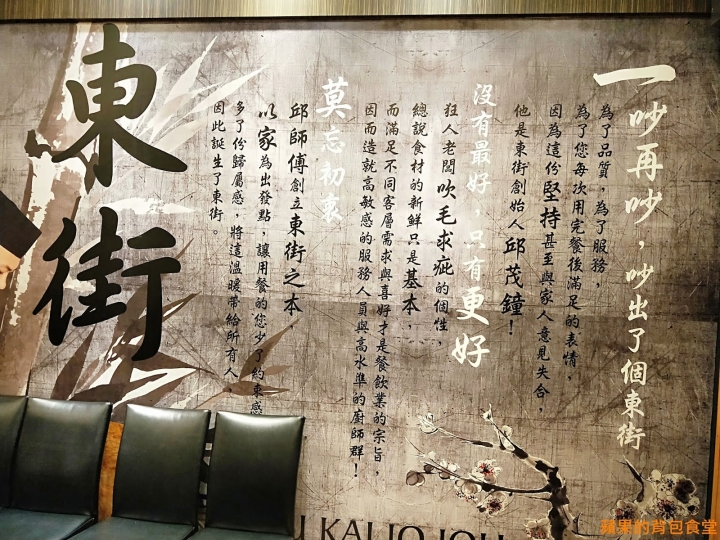 一吵再吵，吵出了個東街
為了品質，為了服務，
為了您每次用完餐後滿足的表情，
因為這份堅持甚至與家人意見失合，
他是東街創始人邱茂鐘！
沒有最好，只有更好
狂人老闆吹毛求疵的個性，
總說食材的新鮮只是基本，
而滿足不同客層需求與喜好才是餐飲業的宗旨，
因而造就高敏感的服務人員與高水準的廚師群！
莫忘初衷
邱師傅創立東街之本
以家為出發點，讓用餐的您少了約束感
多了份歸屬感，將這溫暖帶給所有人，
因此誕生了東街。
東街
KAI JO
蘋果的背包食堂